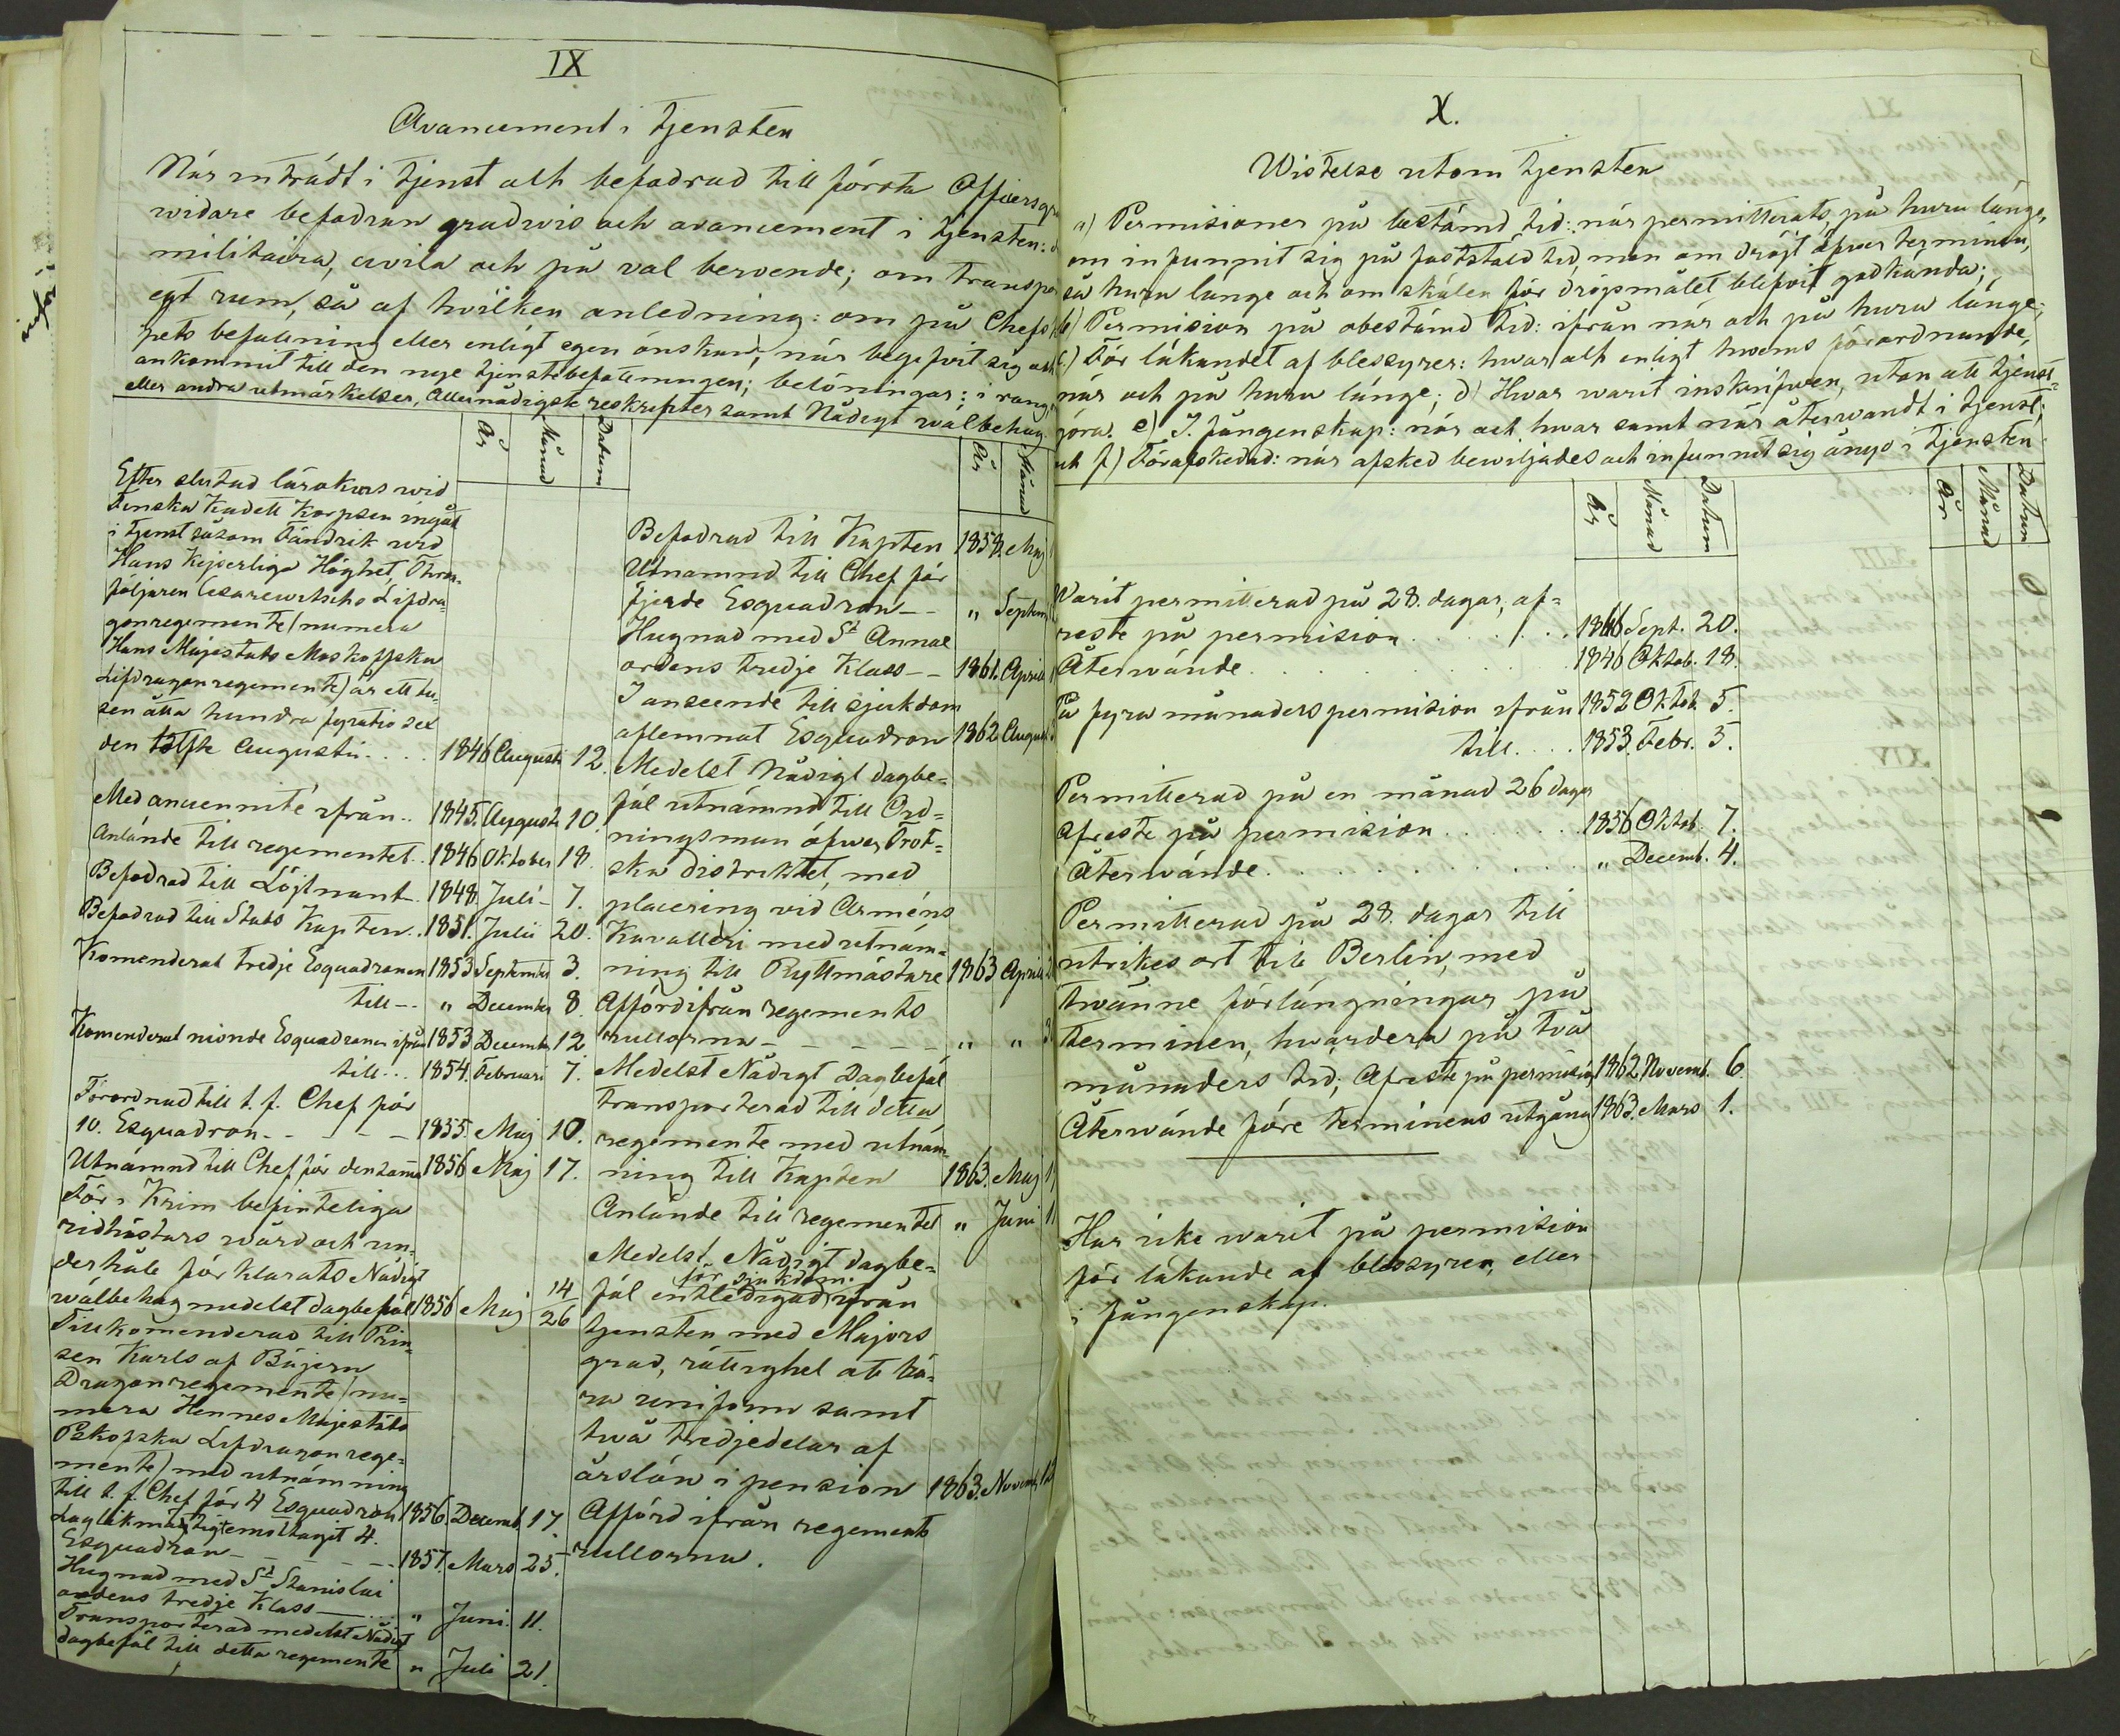 IX
Avancement i tjensten
När inträdt i tjenst och befodrad till första Officersgra
widare befodran gradwis och avancement i tjensten:
militaira, civila och på val beroende; om transpor
egt rum, så af hvilken anledning: om på Chefs
pets befallning eller enligt egen önskan; när begifvit sig och
ankommit till den nye tjenstebefattningen; belöningar: i rang,
eller andra utmärkelser, Allernådigste reskripter samt Nådigt wälbehag.
År Månad Datum
Efter slutad lärokurs wid
Finska Kadett Korpsen ingått
i tjenst såsom Fändrik wid
Hans Kejserliga Höghet, Thron-
följaren Cesarewitschs Lifdra-
gonregemente (numera
Hans Majestäts Moskoffska
Lifdragonregemente) år ett tu-
sen åtta hundra fyratio sex
den tolfte Augusti . . . . 1846 Augusti 12.
Med anciennité ifrån . . 1845. Augusti 10.
Anlände till regementet . . 1846 Oktober 18.
Befodrad till Löjtnant . . 1848. Juli - 7.
Befodrad till Stabs Kapten . . 1851. Julii 20.
Komenderat tredje Esquadronen 1853 September 3.
till - - " December 8.
Komenderat nionde Esquadronen ifrån 1853 December 12
till . . . 1854. Februari 7.
Förordnad till t. f. Chef för
10. Esquadron - - - - - 1855. Maj 10.
Utnämnd till Chef för densamma 1856 Maj 17.
För i Krim befinteliga
ridhästars wård och un-
derhåll förklarats Nådigt
wälbehag medelst dagbefäl 1856 Maj 14/26
Tillkomenderad till Prin-
sen Karls af Bäjern
Dragonregemente (nu-
mera Hennes Majestäts
Pskofska Lifdragonrege-
mente) med utnämning
till t. f. Chef för 4 Esquadron 1856 Decemb. 17.
Laglikmäßtigt emottagit 4.
Esquadron - - - - - 1857. Mars 25.
Hugnad med St Stanislai
ordens tredje Klass - . . . " Juni. 11.
Transporterad medelst Nådigt
dagbefäl till detta regemente " Juli 21.
År Månad
Befodrad till Kapten 1858. Maj
Utnamnd till Chef för
fjerde Esquadron - - " Septem
Hugnad med St Annae
ordens tredje Klass - - 1861. April
I anseende till sjukdom
aflemnat Esquadron 1862 August
Medelst Nådigt dagbe-
fäl utnämnd till Ord-
ningsman öfwer Trot-
ska distriktet, med
placering vid Arméns
Kavalleri med utnäm-
ning till Ryttmästare 1863 April
Afförd ifrån regements
rullorna - - - - - " " 3
Medelst Nådigt Dagbefäl
transporterad till detta
regemente med utnäm
ning till Kapten 1863. Maj
Anlände till regementet " Juni
Medelst Nådigt dagbe-
för sjukdom.
fäl entledigad ifrån
tjensten med Majors
grad, rättighet att bä-
ra uniform samt
två tredjedelar af
årslön i pension 1863. Novemb.
Afförd ifrån regements
rullorna.
X.
Wistelse utom tjensten
a) Permisioner på bestämd tid: när permitterats, på huru länge,
om infunnit sig på fastställd tid, men om dröjt öfver terminen,
så huru länge och om skälen för dröjsmålet blefvit godkända;
b) Permision på obestämd tid: ifrån när och på huru länge;
c.) För läkandet af blessyrer: hwar och enligt hwems förordnande,
när och på huru länge; d) Hwar warit inskrifwen, utan att tjenst-
göra. e) I. fångenskap: när och hwar samt när återwandt i tjenst;
och f) Förafskedad: när afsked bewiljades och infunnit sig ånyo i tjensten
År Månad Datum
År Månad Datum
Warit permitterad på 28. dagar, af-
reste på permision . . . . . . . 1846 Sept. 20.
Återwände . . . . . . . 1846 Oktob. 18.
På fyra månaders permision ifrån 1852 Oktob. 5.
till . . . . 1853. Febr. 5.
Permitterad på en månad 26 dagar
afreste på permision . . . . . . . 1856 Oktob. 7.
Återwände . . . . . . . . . . " Decemb. 4.
Permitterad på 28. dagar till
utrikes ort till Berlin, med
twänne förlängningar på
terminen, hwardera på två
månaders tid; Afreste på permision 1862. Novemb. 6.
Återwände före terminens utgång 1863. Mars 1.
Har icke warit på permision
för läkande af blessyrer, eller
i fångenskap.